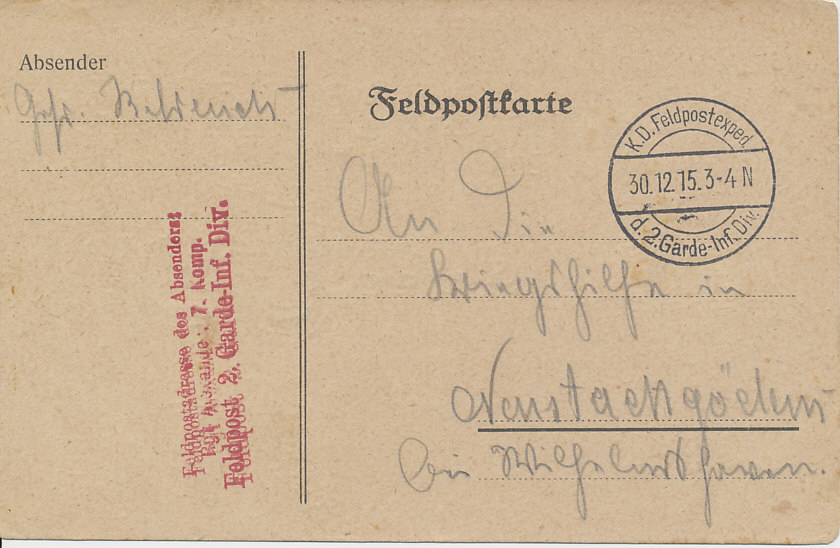 Absender
Gefr. Behrends
Feldpostadresse des Absenders:
Rgt. Alexander, 7. Komp.
Feldpost 2. Garde-Inf. Div.
Feldpostkarte
K.D. Feldpostexped.
30.12.15. 3-4 N
d. 2. Garde-Inf. Div.
An die
Kriegshilfe in
Neustadtgödens
bei Wilhelmshaven.